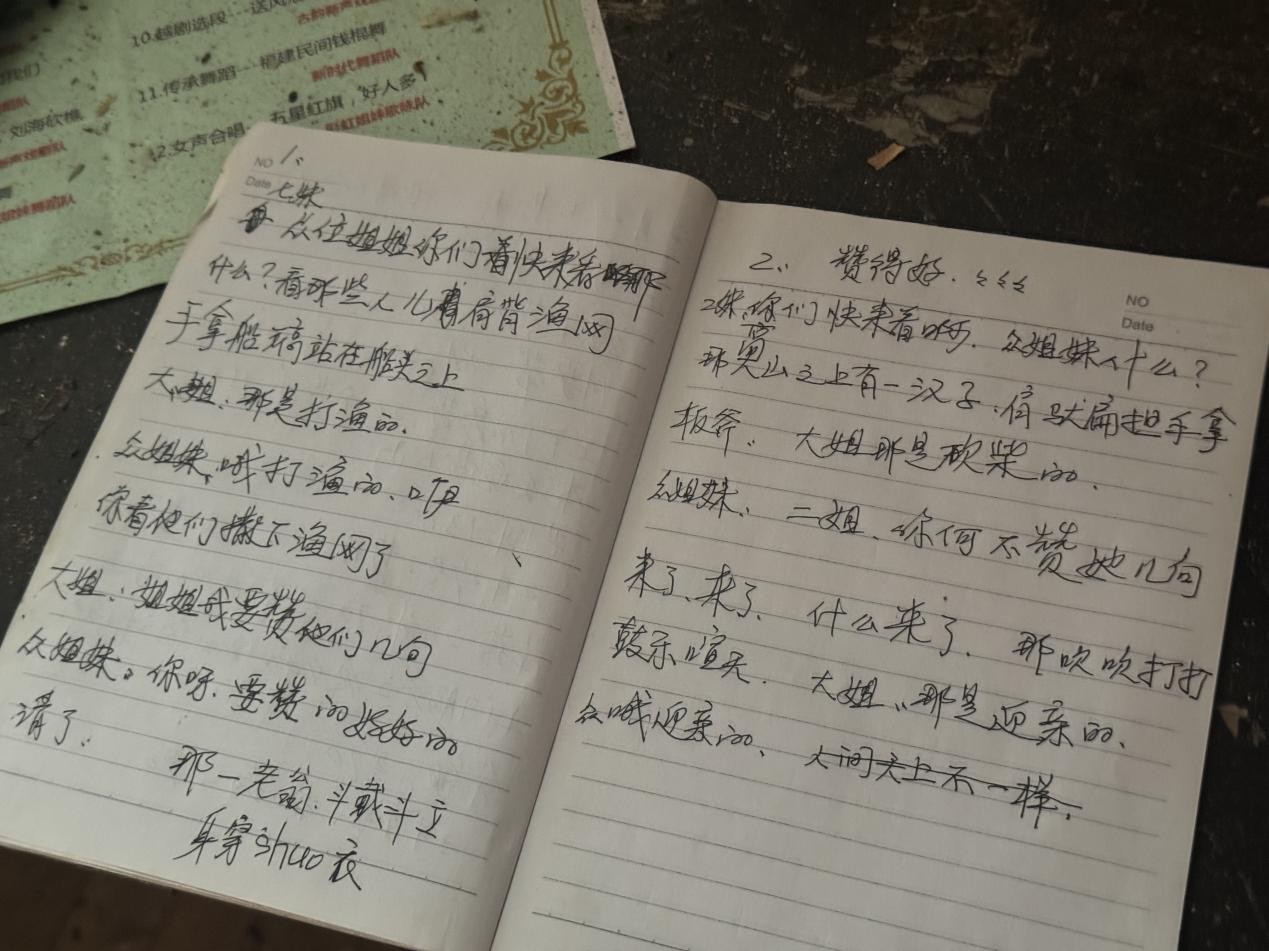 10.越剧选段
11.传承舞蹈---福建民间钱棍舞
新时代舞蹈队
12.女声合唱---五星红旗，好人多
刘海砍樵
NO 1、
Date 七妹
众位姐姐你们看快来看哪
什么？看那些人儿肩背渔网
手拿船篙站在船头之上
大姐、那是打渔的.
众姐妹、哦打渔的、咱
你看他们撒下渔网了
大姐、姐姐我要赞他们几句
众姐妹。你呀.要赞的好好的
请了.
那一老翁.斗戴斗立
身穿shuo衣
2、 赞得好.
NO
Date
2妹、你们快来看啊. 众姐妹人什么？
那 山之上有一汉子、肩驮扁担手拿
板斧. 大姐那是砍柴的.
众姐妹、二姐、你何不赞她几句
来了、来了. 什么来了. 那吹吹打打
鼓乐喧天. 大姐、那是迎亲的、
众哦迎亲的、人间天上不一样.